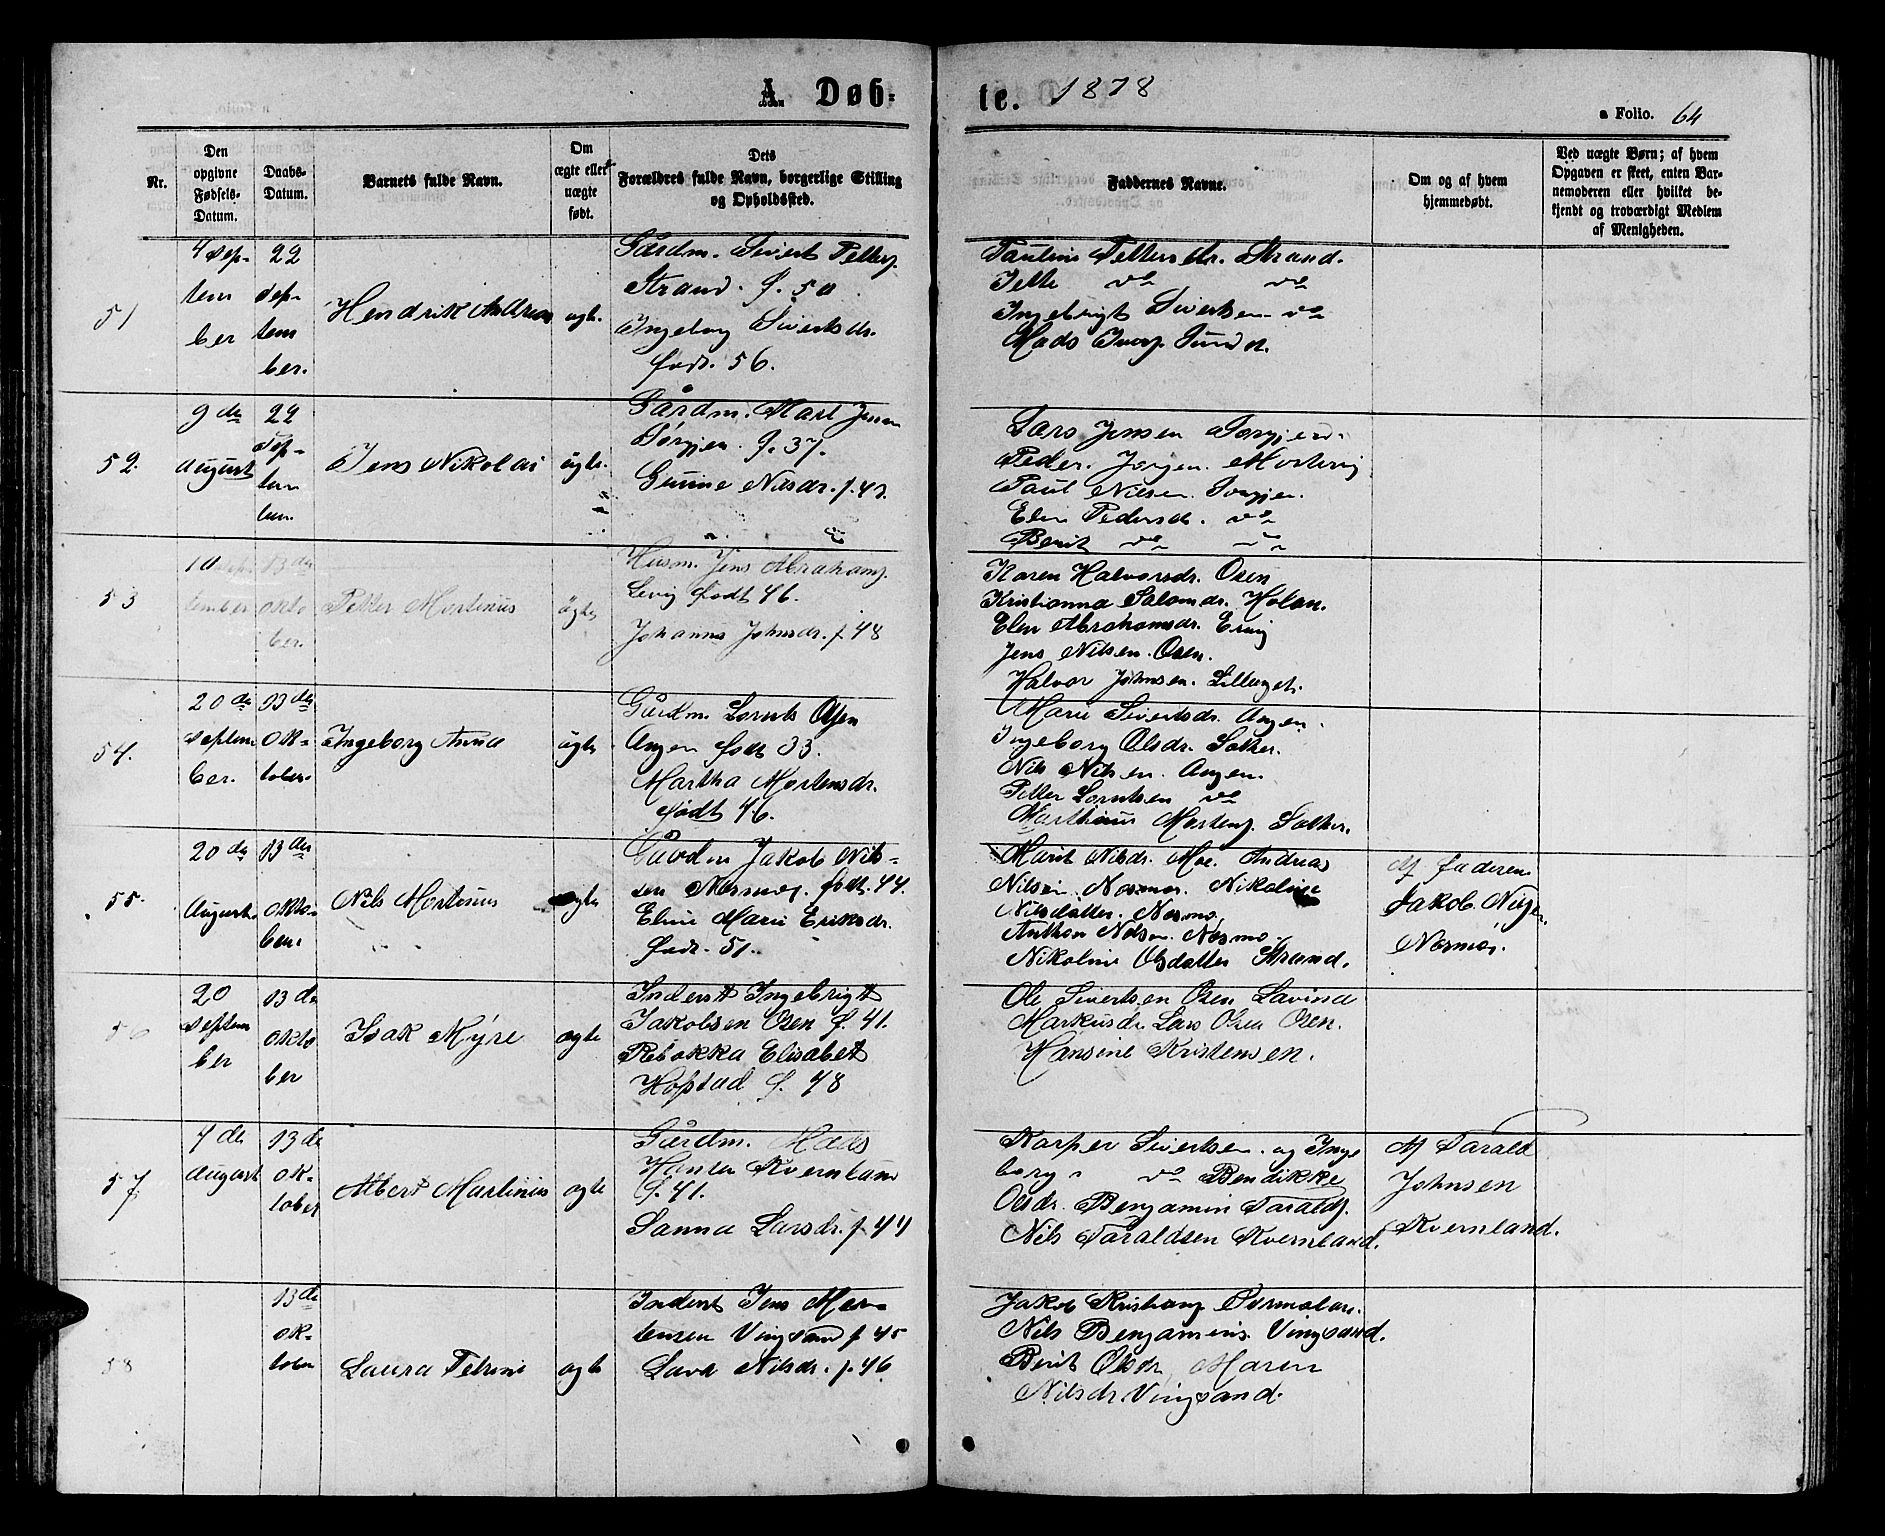 A. Døb-
te. 1878
a Folio. 64
Nr.
Den opgivne Fødsels-Datum.
Daabs-Datum.
Barnets fulde Navn.
Om ægte eller uægte født.
Dets Forældres fulde Navn, borgerlige Stilling og Opholdssted.
Faddernes Navne.
Om og af hvem hjemmedøbt.
Ved uægte Børn; af hvem Opgaven er skeet, enten Barnemoderen eller hvilket bekjendt og troværdigt Medlem af Menigheden.
51
4 Sep-
tem
ber
22
Sep-
tem
ber.
Hendrik Andreas
ægte.
Gårdm. Sivert Petters.
Strand. f. 50
Ingeborg Sivertsdr.
født. 56.
Pauline Pettersdr. Strand.
Jette do do
Ingebrigt Sivertsen do
Mads Ivers. Sund
52.
9 de
August
22
Sep-
tem
Jens Nikolai
ægte.
Gårdm. Mart Jensen
Sørgjer. f. 37.
Gunne Nilsdr. f. 43.
Lars Jensen Sørgjer.
Peder Jørgen
Paul Nilsen Sørgjer.
Elen Pedersd. do
Berit do do
53
10 Sep-
tember
13 de
Okto
ber.
Petter Mortinus
ægte
Husm. Jens Abrahams.
Levig født 46.
Johanna Johnsdr. f. 48
Karen Halvorsdr. Osen
Kristianna Salomdr. Holan.
Elen Abrahamsdr.
Jens Nilsen. Osen.
Halvor Johnsen.
54.
20 de
Septem
ber.
13 de
Ok-
tober.
Ingeborg Anna
ægte
Gårdm. Lornts Olsen
Angen født 33.
Martha Mortensdr.
født 46.
Marie Sivertsdr. Angen.
Ingeborg Olsdr. Sæther.
Nils Nilsen. Angen.
Petter Lorntsen do
Mortens. Sæther.
55.
20 de
August
13 de
Okto-
ber.
Nils Mortinus
ægte
Gårdm Jakob Nil-
sen Næsmo. født. 44.
Eline Marie Eriksdr.
født. 51.
Marit Nilsdr. Moe. Andreas
Nilsen. Næsmo. Nikoline
Nilsdatter. Næsmo,
Anthon Nilsen. Næsmo.
Nikoline Olsdatter Strand.
Af faderen
Jakob Nilsen
Næsmo.
56
20
Septem
ber
13 de
Okto
ber
Isak Myre
ægte
Inderst Ingebrigt
Jakobsen Osen f. 41.
Rebekka Elisabet
Hopstad f. 48
Ole Sivertsen Osen Lavina
Markusdr. Lars Olsen Osen.
Hansine Kristensen.
57
4 de
August
13 de
Ok-
tober
Albert Martinus
ægte
Gårdm. Mads
Hansen Kvernland
f. 41.
Sanna Larsdr. f. 44
Kasper Sivertsen. og Inge
borg do Bendikke
Olsdr. Benjamin Taralds.
Nils Taraldsen Kvernland.
Af Tarald
Johnsen
Kvernland.
58
13 de
Ok-
tober
Laura Petrine
ægte
Inderst Jens Mor-
tensen Vingsand f 45
Nilsdr. f. 46
Jakob Kristians.
Nils Benjamins. Vingsand.
Berit Olsdr. Maren
Nilsdr. Vingsand.